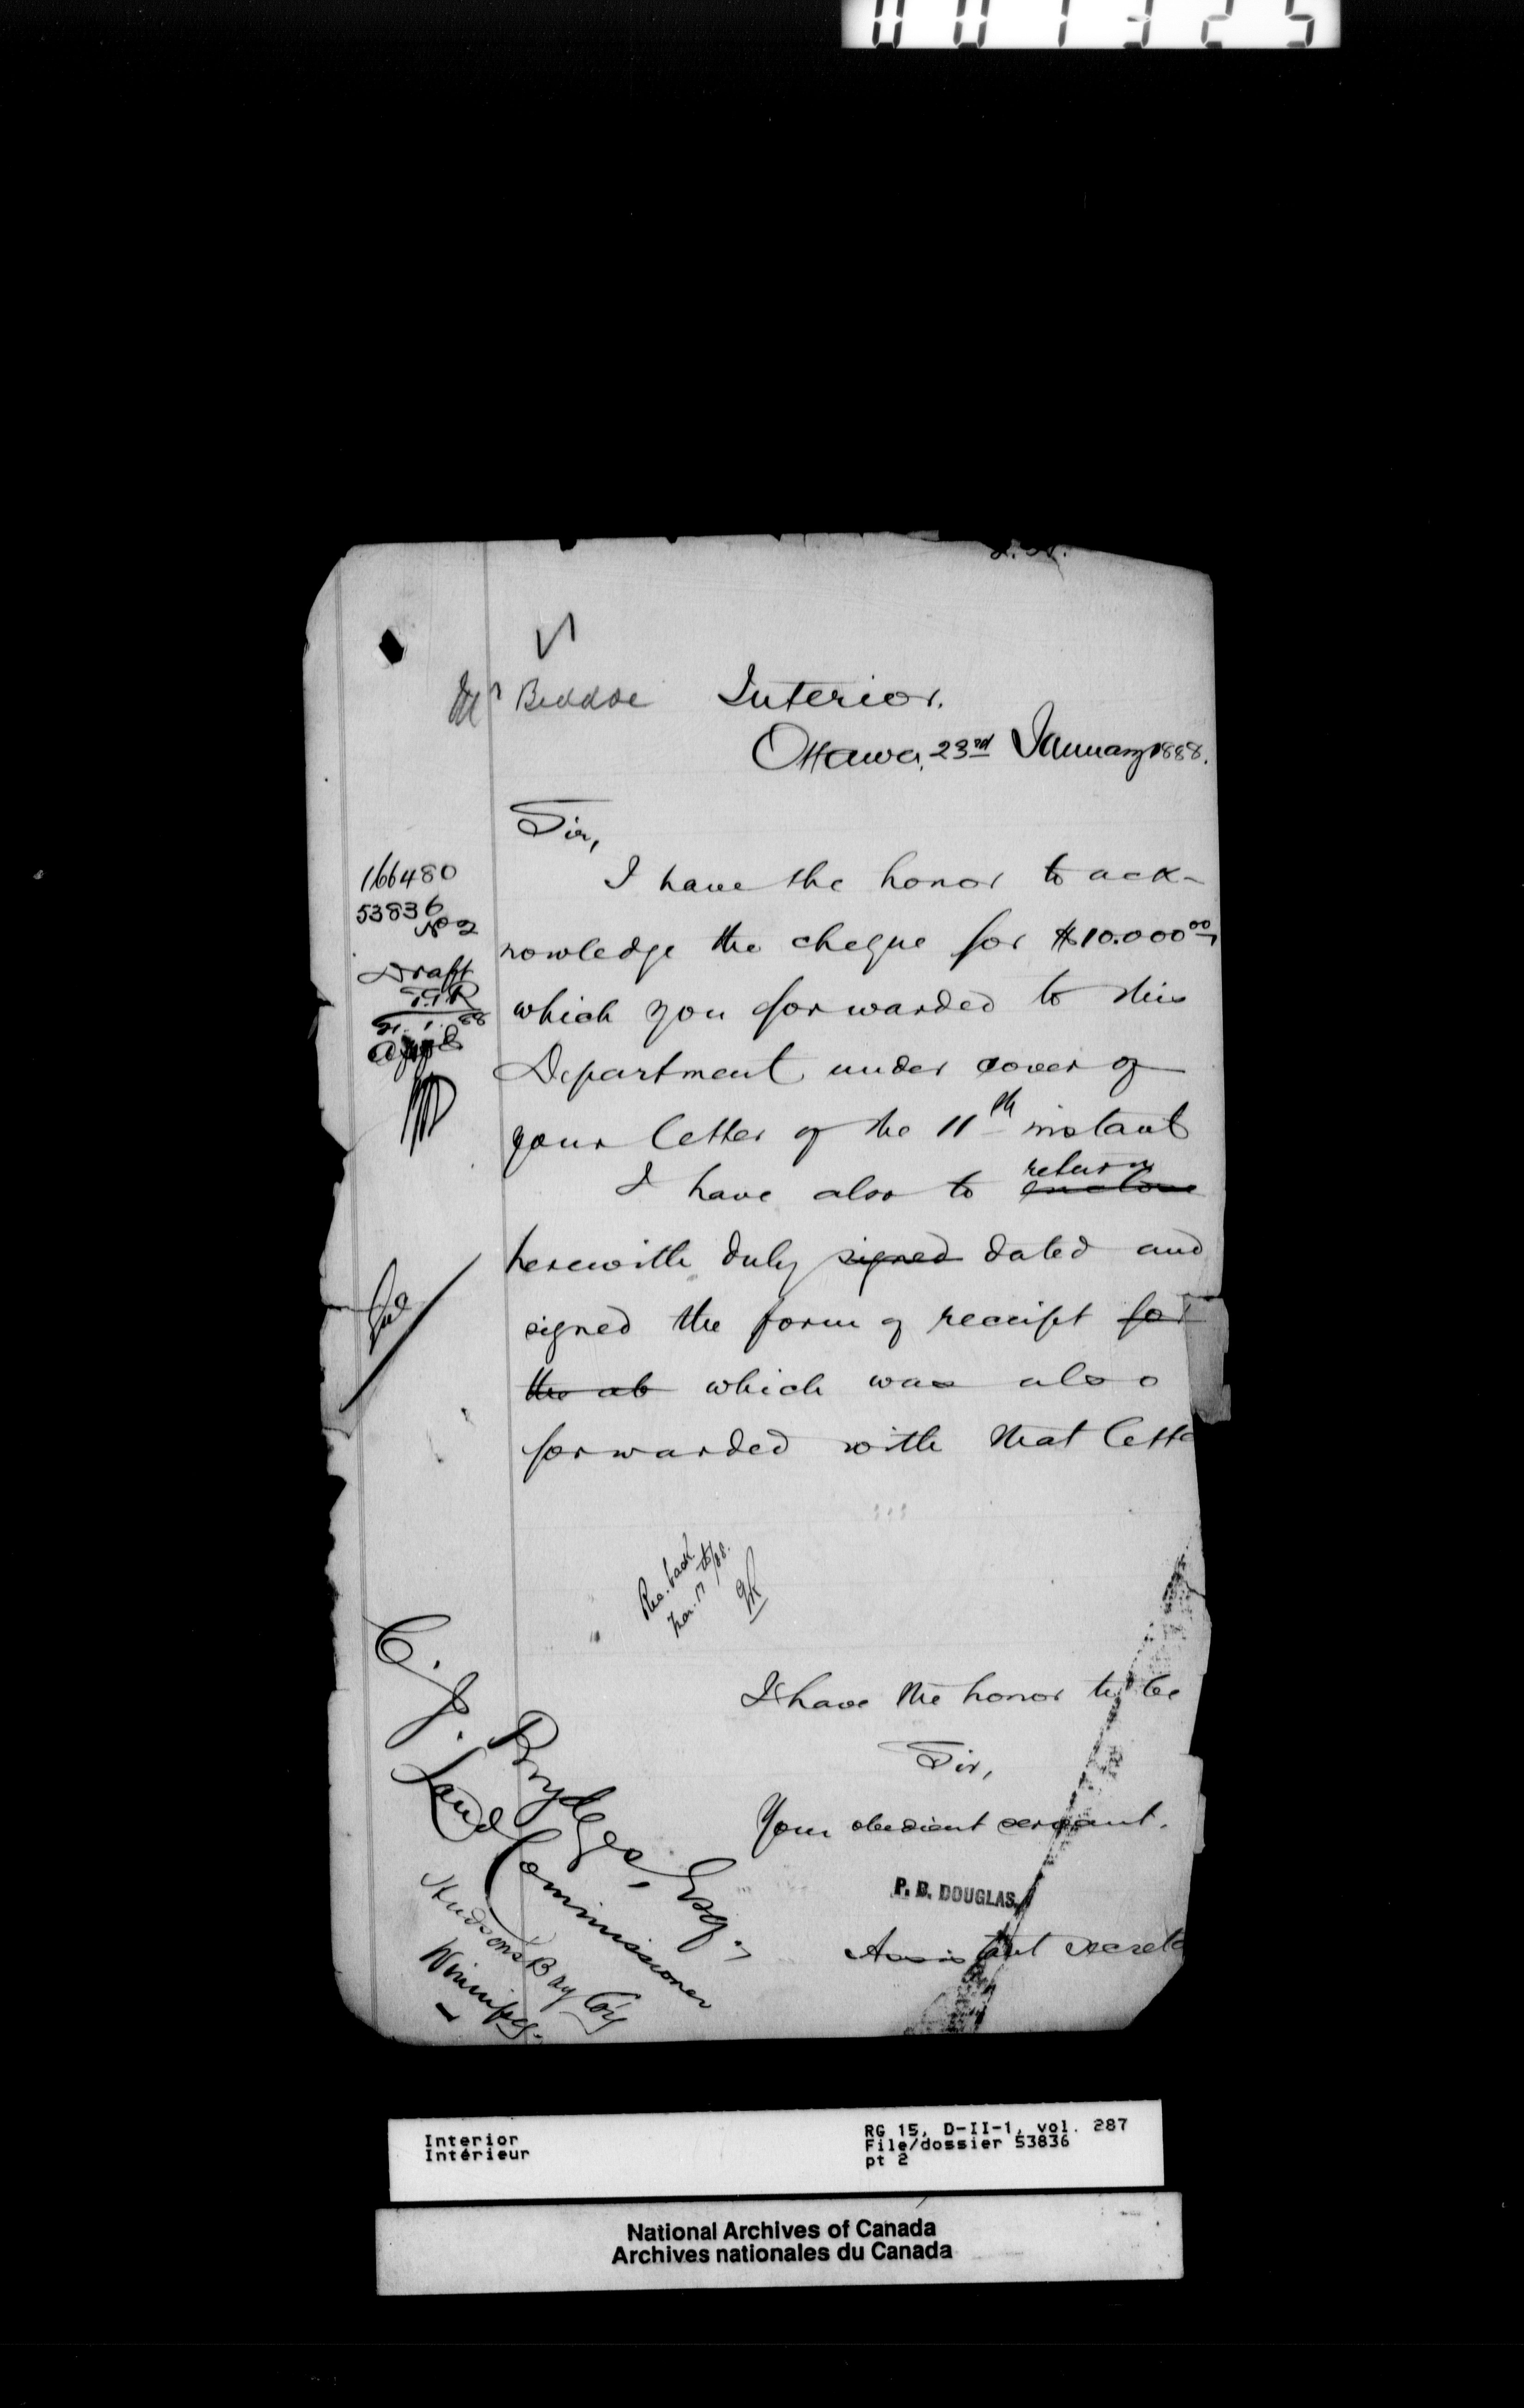 001325
Mr Beddoe
Interior.
Ottawa, 23rd January 1888.
Sir,
166480
53836
No 2
Draft
I have the honor to ack-
nowledge the cheque for $10.000 00
which you forwarded to this
Department under cover of
your letter of the 11th instant
I have also to enclose return
herewith duly signed dated and
signed the form of receipt for
the ab which was also
forwarded with that lette
Rec. back
I have the honor to be
Sir,
Your obedient servant.
P. B. DOUGLAS,
Assistant Secreta
C. J. Brydges, Esq.,
Land Commissioner
Hudsons Bay Coy
Winnipeg.
Interior
Intérieur
RG 15, D-II-1, vol. 287
File/dossier 53836
pt 2
National Archives of Canada
Archives nationales du Canada